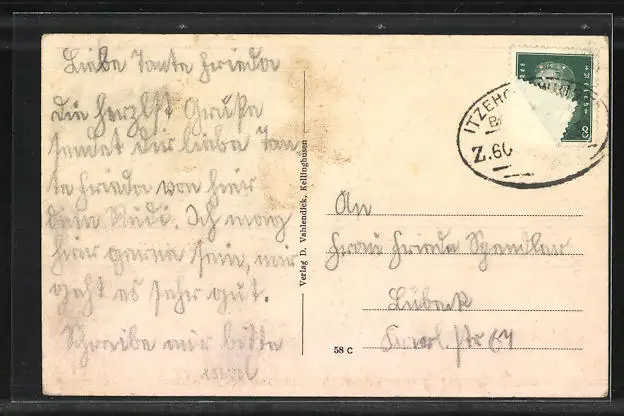 Liebe Tante Frieda
Die herzlst Grüße
sendet Dir liebe Tan-
te Frieda von hier
dein Rudi. Ich mag
hier gerne sein, mir
geht es sehr gut.
Schreibe mir bitte
mal
Verlag D. Vahlendick, Kellinghusen
ITZEHO
Z.60
8
An
Frau Frieda Spendler
Lübeck
str 67
58 C